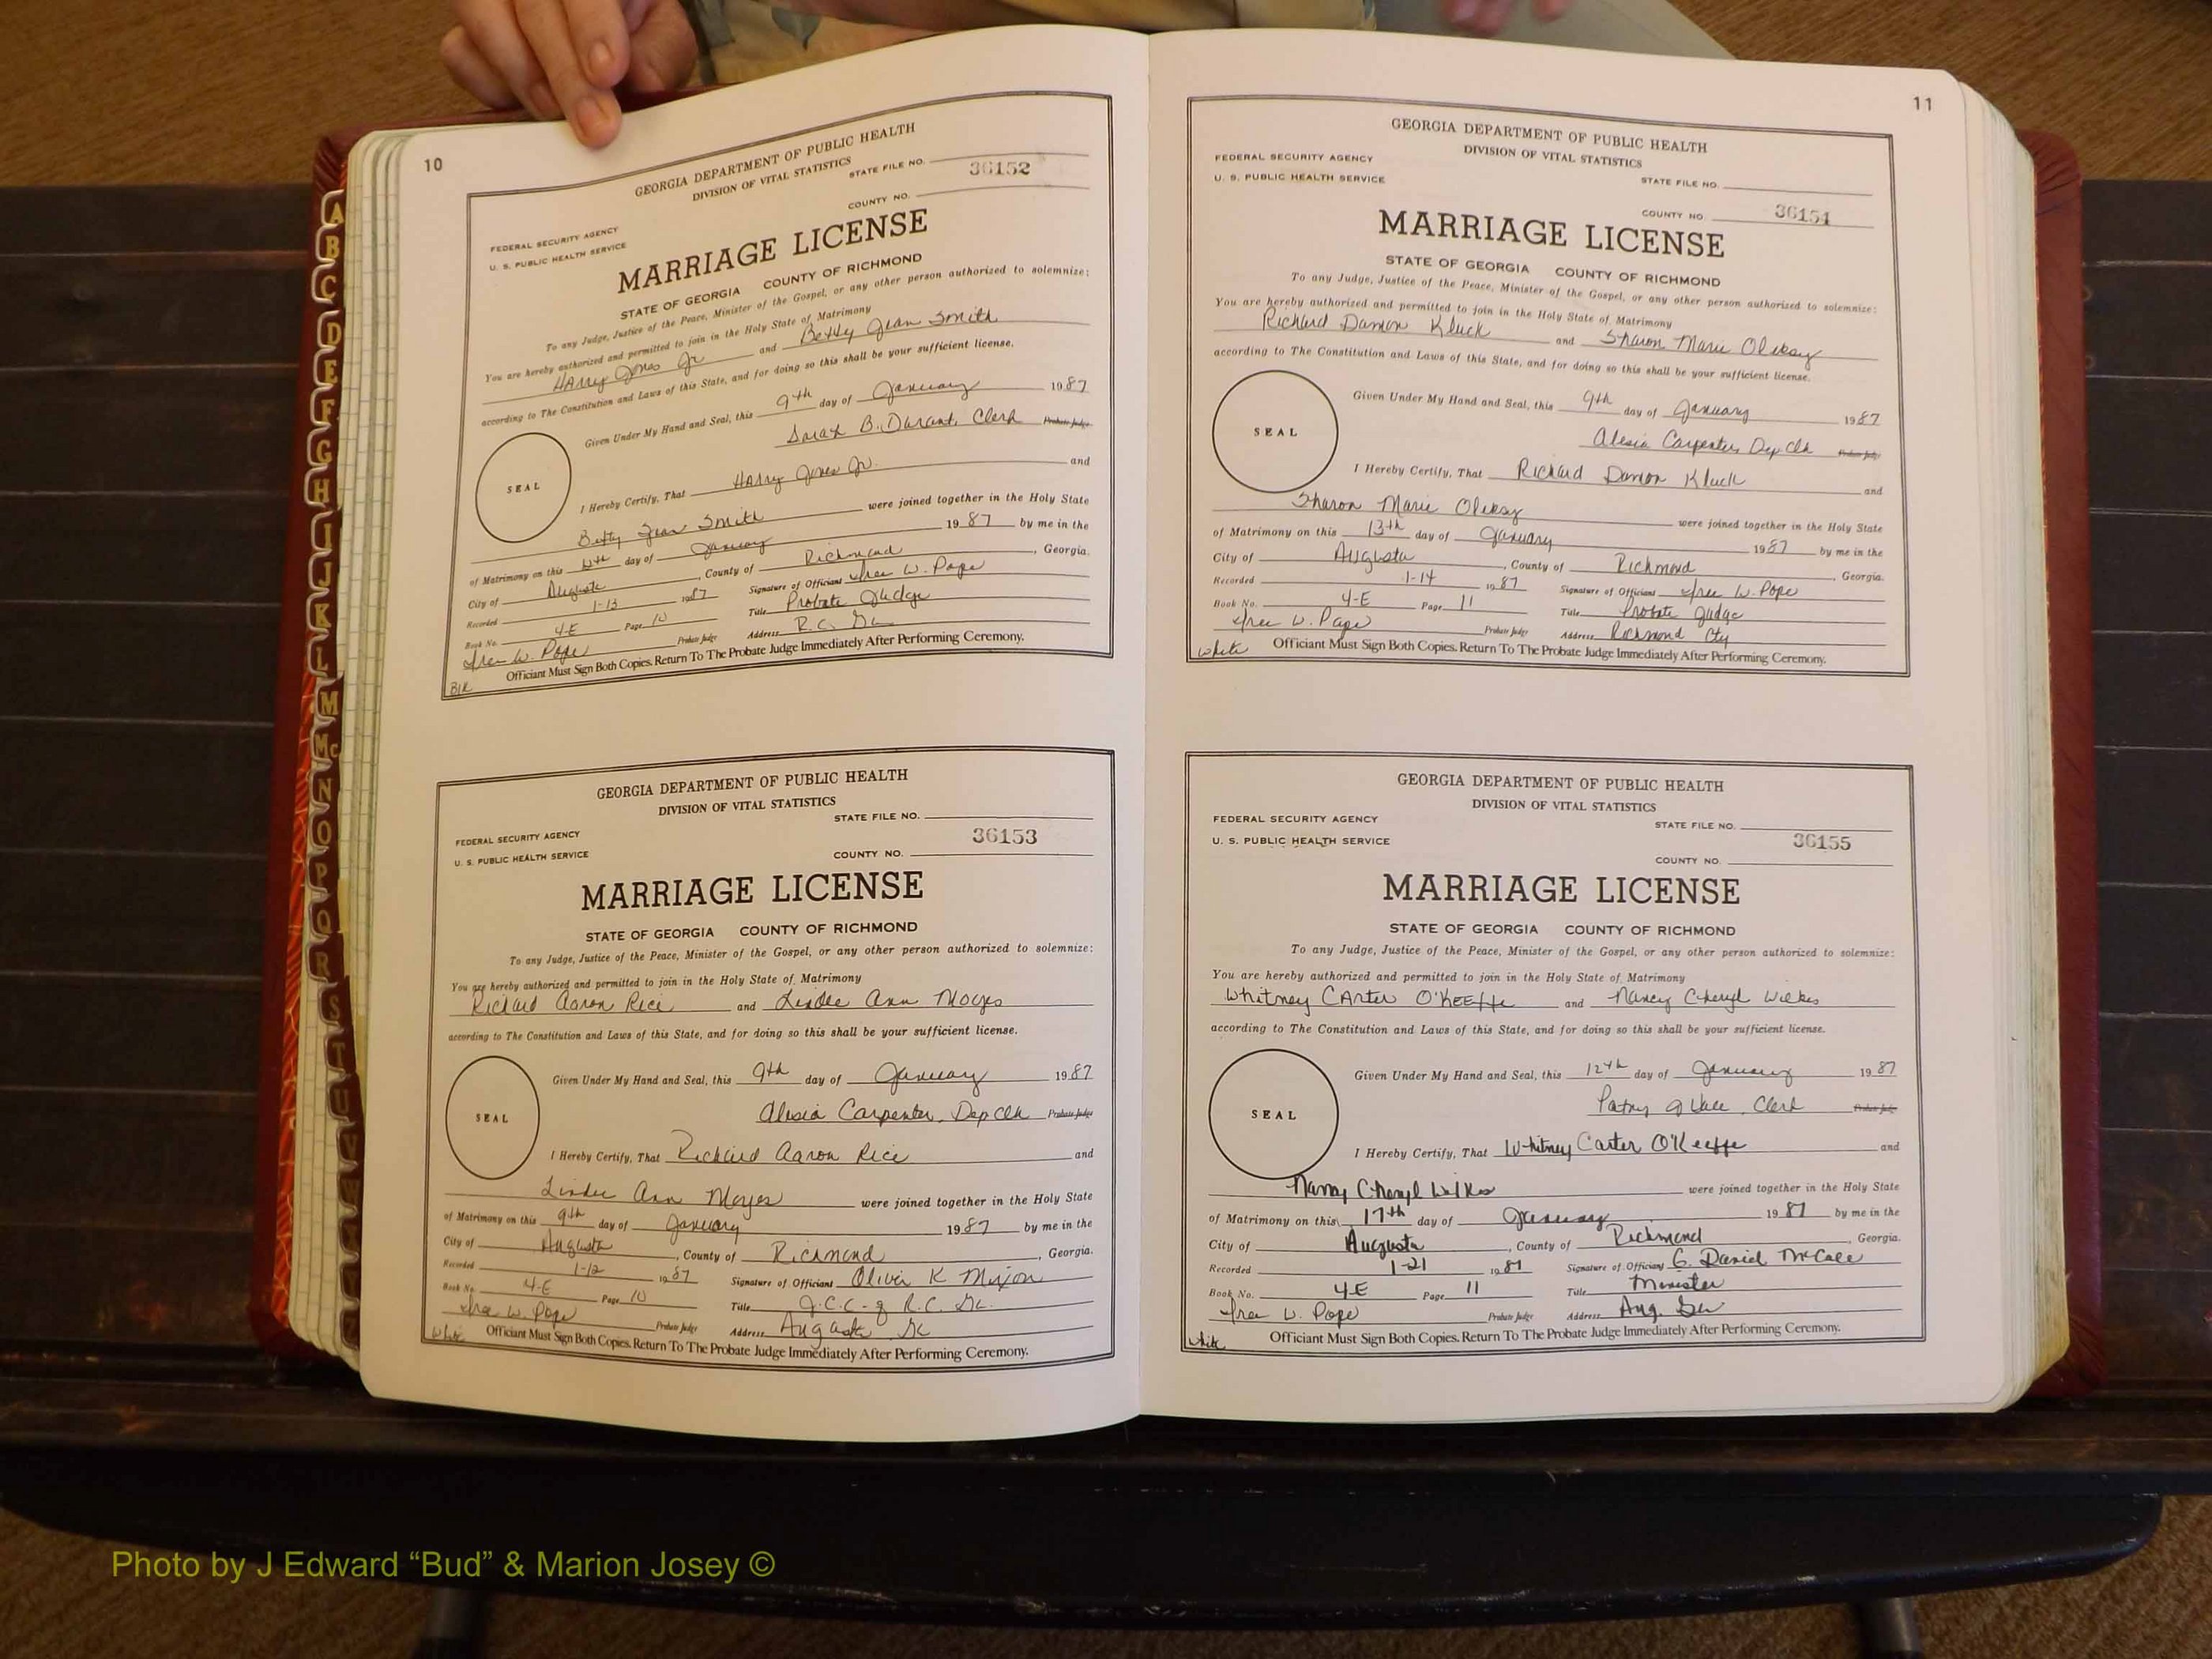 10
GEORGIA DEPARTMENT OF PUBLIC HEALTH
DIVISION OF VITAL STATISTICS
STATE FILE NO.
36152
COUNTY NO.
FEDERAL SECURITY AGENCY
U. S. PUBLIC HEALTH SERVICE
MARRIAGE LICENSE
STATE OF GEORGIA COUNTY OF RICHMOND
To any Judge, Justice of the Peace, Minister of the Gospel, or any other person authorized to solemnize:
You are hereby authorized and permitted to join in the Holy State of Matrimony
Harry Jones Jr and Betty Jean Smith
according to The Constitution and Laws of this State, and for doing so this shall be your sufficient license.
Given Under My Hand and Seal, this 9th day of January 1987
Sarah B. Durant, Clerk Probate Judge
SEAL
I Hereby Certify, That Harry Jones Jr. and
Betty Jean Smith were joined together in the Holy State
of Matrimony on this day of January 1987 by me in the
City of Augusta, County of Richmond, Georgia.
Recorded 1-13 1987 Signature of Officiant W. Pope
Book No. 4-E Page 10 Title Probate Judge
W. Pope Probate Judge Address R.C. Ga
Officiant Must Sign Both Copies. Return To The Probate Judge Immediately After Performing Ceremony.
Blk
GEORGIA DEPARTMENT OF PUBLIC HEALTH
DIVISION OF VITAL STATISTICS
STATE FILE NO.
FEDERAL SECURITY AGENCY
36153
U. S. PUBLIC HEALTH SERVICE
COUNTY NO.
MARRIAGE LICENSE
STATE OF GEORGIA COUNTY OF RICHMOND
To any Judge, Justice of the Peace, Minister of the Gospel, or any other person authorized to solemnize:
You are hereby authorized and permitted to join in the Holy State of Matrimony
Richard Aaron Rice and Lindee Ann Moyes
according to The Constitution and Laws of this State, and for doing so this shall be your sufficient license.
Given Under My Hand and Seal, this 9th day of January 1987
Alesia Carpenter, Dep Clk Probate Judge
SEAL
I Hereby Certify, That Richard Aaron Rice and
Lindee Ann Moyes were joined together in the Holy State
of Matrimony on this 9th day of January 1987 by me in the
City of Augusta, County of Richmond, Georgia.
Recorded 1-12 1987 Signature of Officiant Oliver K Mixon
Book No. 4-E Page 10 Title J.C.C. of R.C. Ga.
W. Pope Probate Judge Address Augusta Ga
White Officiant Must Sign Both Copies. Return To The Probate Judge Immediately After Performing Ceremony.
11
GEORGIA DEPARTMENT OF PUBLIC HEALTH
DIVISION OF VITAL STATISTICS
FEDERAL SECURITY AGENCY
U. S. PUBLIC HEALTH SERVICE
STATE FILE NO.
COUNTY NO. 36154
MARRIAGE LICENSE
STATE OF GEORGIA COUNTY OF RICHMOND
To any Judge, Justice of the Peace, Minister of the Gospel, or any other person authorized to solemnize:
You are hereby authorized and permitted to join in the Holy State of Matrimony
Richard Damon Kluck and Sharon Marie Oleksy
according to The Constitution and Laws of this State, and for doing so this shall be your sufficient license.
Given Under My Hand and Seal, this 9th day of January 1987
Alesia Carpenter, Dep Clk Probate Judge
SEAL
I Hereby Certify, That Richard Damon Kluck and
Sharon Marie Oleksy were joined together in the Holy State
of Matrimony on this 13th day of January 1987 by me in the
City of Augusta, County of Richmond, Georgia.
Recorded 1-14 1987 Signature of Officiant W. Pope
Book No. 4-E Page 11 Title Probate Judge
W. Pope Probate Judge Address Richmond Cty
White Officiant Must Sign Both Copies. Return To The Probate Judge Immediately After Performing Ceremony.
GEORGIA DEPARTMENT OF PUBLIC HEALTH
DIVISION OF VITAL STATISTICS
FEDERAL SECURITY AGENCY
STATE FILE NO.
U. S. PUBLIC HEALTH SERVICE
36155
COUNTY NO.
MARRIAGE LICENSE
STATE OF GEORGIA COUNTY OF RICHMOND
To any Judge, Justice of the Peace, Minister of the Gospel, or any other person authorized to solemnize:
You are hereby authorized and permitted to join in the Holy State of Matrimony
Whitney Carter O'Keeffe and Nancy Cheryl Wilkes
according to The Constitution and Laws of this State, and for doing so this shall be your sufficient license.
Given Under My Hand and Seal, this 12th day of January 1987
Clerk Probate Judge
SEAL
I Hereby Certify, That Whitney Carter O'Keeffe and
Nancy Cheryl Wilkes were joined together in the Holy State
of Matrimony on this 17th day of January 1987 by me in the
City of Augusta, County of Richmond, Georgia.
Recorded 1-21 1987 Signature of Officiant G. David McCall
Book No. 4-E Page 11 Title Minister
W. Pope Probate Judge Address Aug. Ga
White Officiant Must Sign Both Copies. Return To The Probate Judge Immediately After Performing Ceremony.
A
B
C
D
E
F
G
H
I
J
K
L
M
Mc
N
O
P
Q
R
S
T
U
V
Photo by J Edward “Bud” & Marion Josey ©